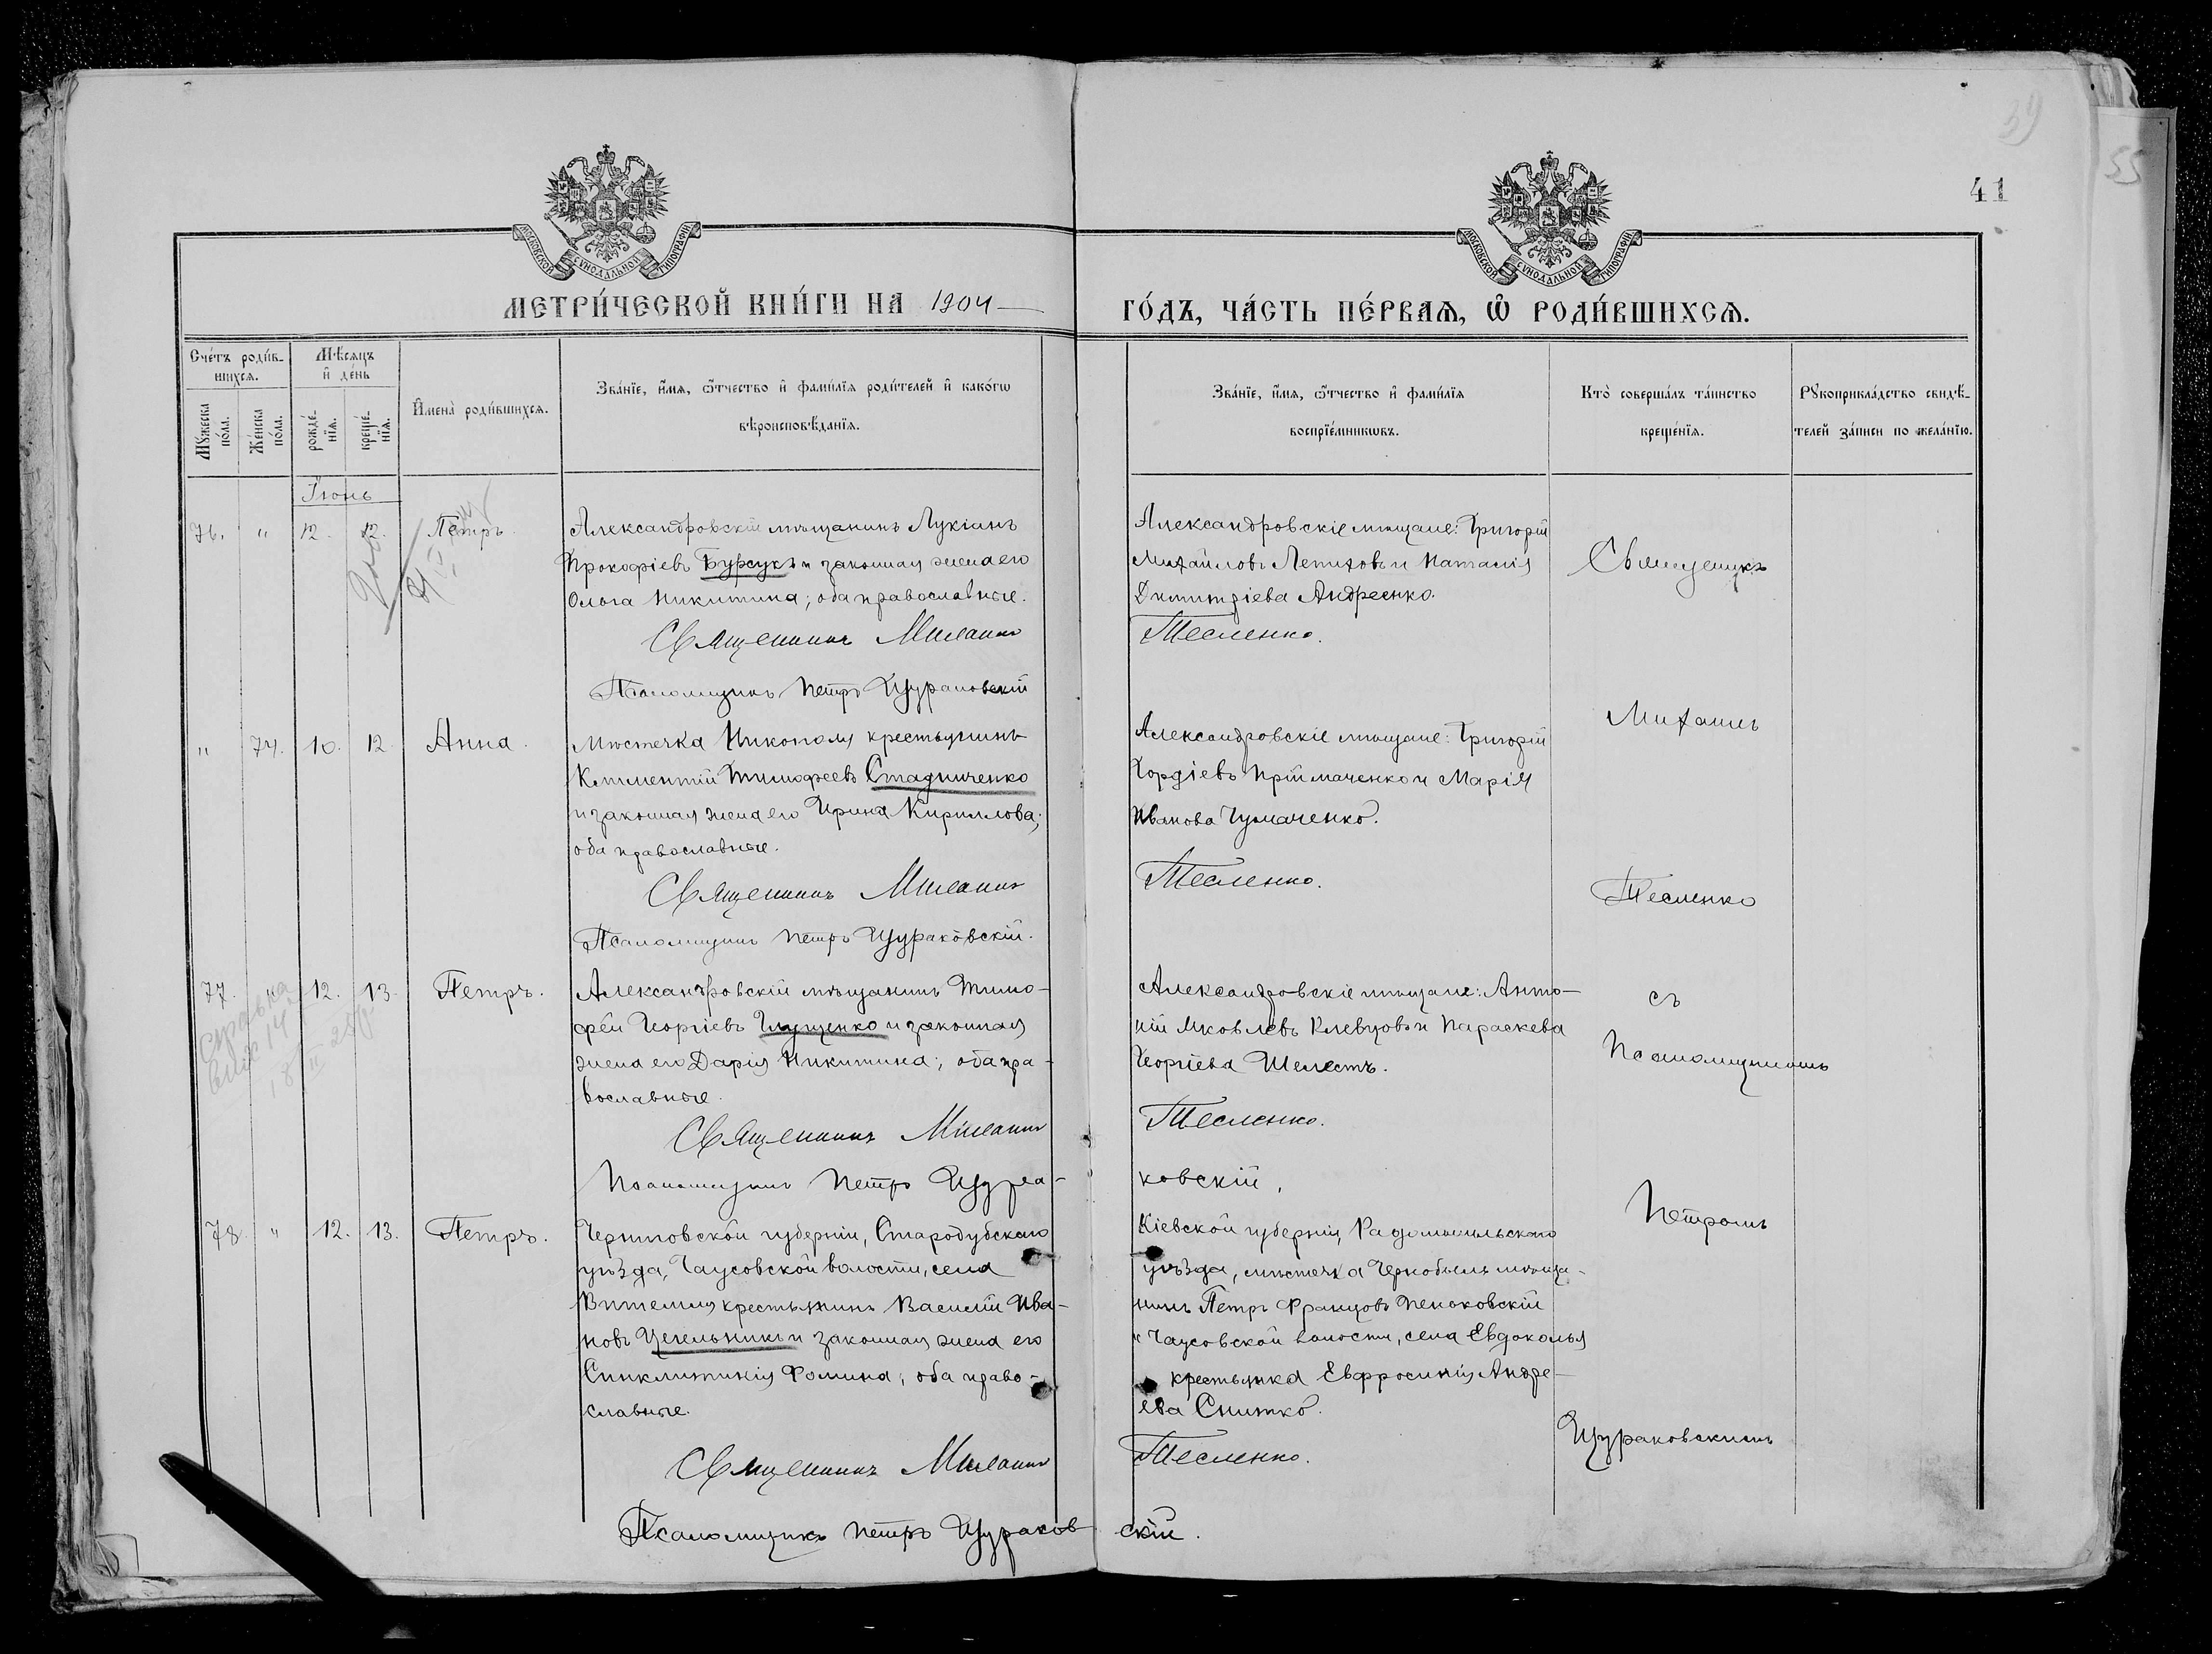 39
55
41
МОСКОВСКОЙ СѴНОДАЛЬНОЙ ТИПОГРАФІИ
МОСКОВСКОЙ СѴНОДАЛЬНОЙ ТИПОГРАФІИ
МЕТРИ́ЧЕСКОЙ КНИ́ГИ НА 1904
ГО́ДЪ, ЧА́СТЬ ПЕ́РВАѦ, Ѡ҆ РОДИ́ВШИХСѦ.
Сче́тъ роди́в-
шихсѧ.
Мѣ́сѧцъ
и҆ де́нь
Мꙋ́жеска
по́ла.
Же́нска
по́ла.
рожде́-
нїѧ.
креще́-
нїѧ.
И҆мена̀ роди́вшихсѧ.
Зва́нїе, и҆́мѧ, ѻ҆́тчество и҆ фами́лїѧ роди́телей и҆ како́гѡ
вѣроисповѣ́данїѧ.
Зва́нїе, и҆́мѧ, ѻ҆́тчество и҆ фами́лїѧ
воспрїе́мникѡвъ.
Кто̀ соверша́лъ та́инство
креще́нїѧ.
Рꙋкоприкла́дство свидѣ́-
телей за́писи по жела́нїю.
Іюнь
76. " 12. 12. Петръ.
Александровскій мѣщанинъ Лукіанъ
Прокофіевъ Бурсукъ и законная жена его
Ольга Никитина; оба православные.
Священникъ Михаилъ
Тесленко.
Псаломщикъ Петръ Цураковскій
Александровскіе мѣщане: Григорій
Михайловъ Летиховъ и Наталія
Димитріева Андреенко.
" 74. 10. 12. Анна.
Мѣстечка Никополя крестьянинъ
Климентій Тимофеевъ Стадниченко
и законная жена его Ирина Кириллова;
оба православные.
Священникъ Михаилъ
Тесленко.
Псаломщикъ Петръ Цураковскій.
Александровскіе мѣщане: Григорій
Гордіевъ Приймаченко и Марія
Иванова Чумаченко.
77. 12. 13. Петръ.
справка
Александровскій мѣщанинъ Тимо-
фей Георгіевъ Глущенко и законная
жена его Дарія Никитина; оба пра-
вославные.
Священникъ Михаилъ
Тесленко.
Псаломщикъ Петръ Цура-
ковскій.
Александровскіе мѣщане: Анто-
ній Яковлевъ Клевцовъ и Параскева
Георгіева Шелестъ.
78. " 12. 13. Петръ.
Черниговской губерніи, Стародубскаго
уѣзда, Чаусовской волости, села
Витемля крестьянинъ Василій Ива-
новъ Цегельникъ и законная жена его
Синклитикія Фомина; оба право-
славные.
Священникъ Михаилъ
Тесленко.
Псаломщикъ Петръ Цураков
скій.
Кіевской губерніи, Радомысльскаго
уѣзда, мѣстечка Чернобыля мѣща-
нинъ Петръ Францовъ
и Чаусовской волости, села Евдоколья
крестьянка Евфросинія Андре-
ева Снитко.
Священникъ
Михаилъ
Тесленко
съ
Псаломщикомъ
Петромъ
Цураковскимъ